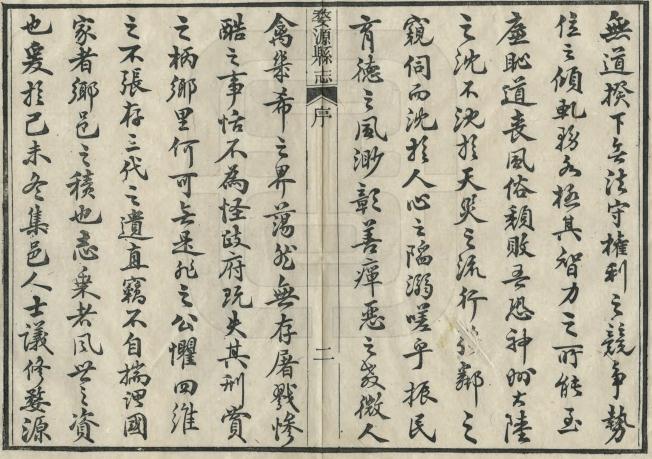 無道揆下無法守權利之競爭勢
位之傾軋務各極其智力之所能至
廉恥道喪風俗頹敗吾恐神州大陸
之沈不沈於天災之流行強鄰之
窺伺而沈於人心之陷溺嗟乎振民
育德之風渺彰善癉惡之教微人
婺源縣志
序
二
禽幾希之界蕩然無存屠戮慘
酷之事恬不為怪政府既失其刑賞
之柄鄉里何可無是非之公懼四維
之不張存三代之遺直竊不自揣謂國
家者鄉邑之積也志乘者風世之資
也爰於己未冬集邑人士議修婺源